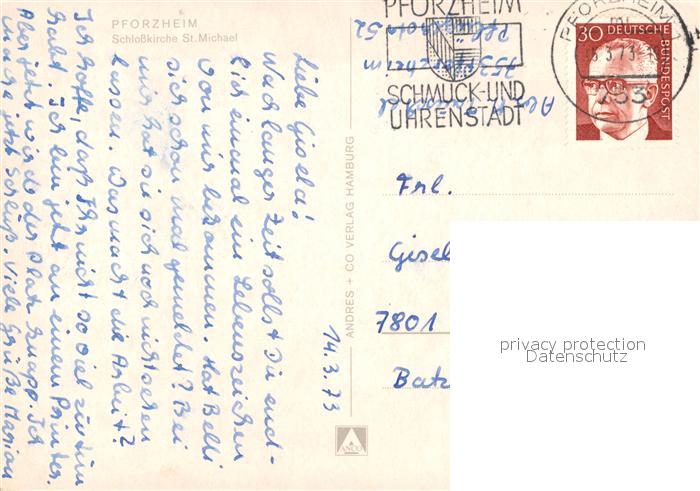 PFORZHEIM
Schloßkirche St. Michael
14.3.73
Liebe Gisela!
Nach langer Zeit sollst Du end-
lich einmal ein Lebenszeichen
von mir bekommen. Hat Belli
sich schon mal gemeldet? Bei
mir hat sie sich noch nicht sehen
lassen. Was macht die Arbeit?
Ich hoffe, daß Ihr nicht so viel zu tun
habt. Ich bin jetzt an einem Printer.
Aber jetzt wird der Platz knapp. Ich
mache jetzt Schluß. Viele Grüße Marion
ANDRES + CO VERLAG HAMBURG
ANCO
PFORZHEIM
SCHMUCK-UND
UHRENSTADT
PFORZHEIM
753
30 DEUTSCHE
BUNDESPOST
753 Pforzheim
Frl.
Gisel
7801
Batz
privacy protection
Datenschutz